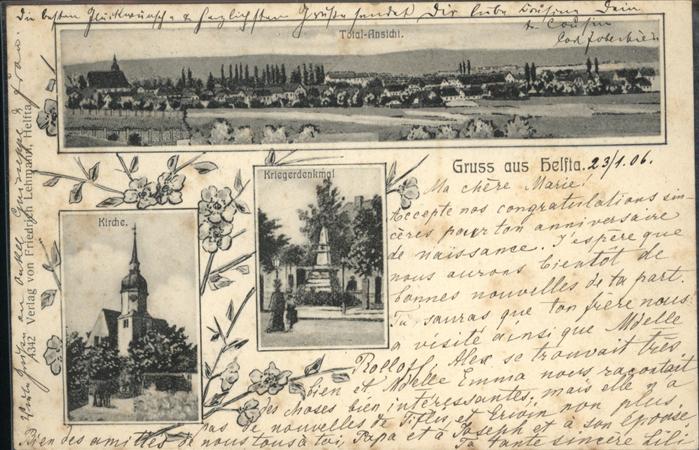 Die besten Glückwünsche & herzlichsten Grüße sendet Dir liebe Cousine Dein
tr. Cousin
Total-Ansicht.
Gruss aus Helfta. 23/1.06.
Kriegerdenkmal
Kirche.
A342 Verlag von Friedrich Lehmann, Helfta.
Ma chère Marie!
Accepte nos congratulations sin-
cères pour ton anniversaire
de naissance. J'espère que
nous aurons bientôt de
bonnes nouvelles de ta part.
Tu sauras que ton frère nous
a visité ainsi que Mdelle
Rolloff. Alex se trouvait très
bien et Mdelle Emma nous racontait
des choses bien intéressantes, mais elle n'a
pas de nouvelles de Tiflis, et Erivan non plus.
Bien des amitiés de nous tous à toi, Papa et à Joseph et à son épouse
Ta tante sincère Lili